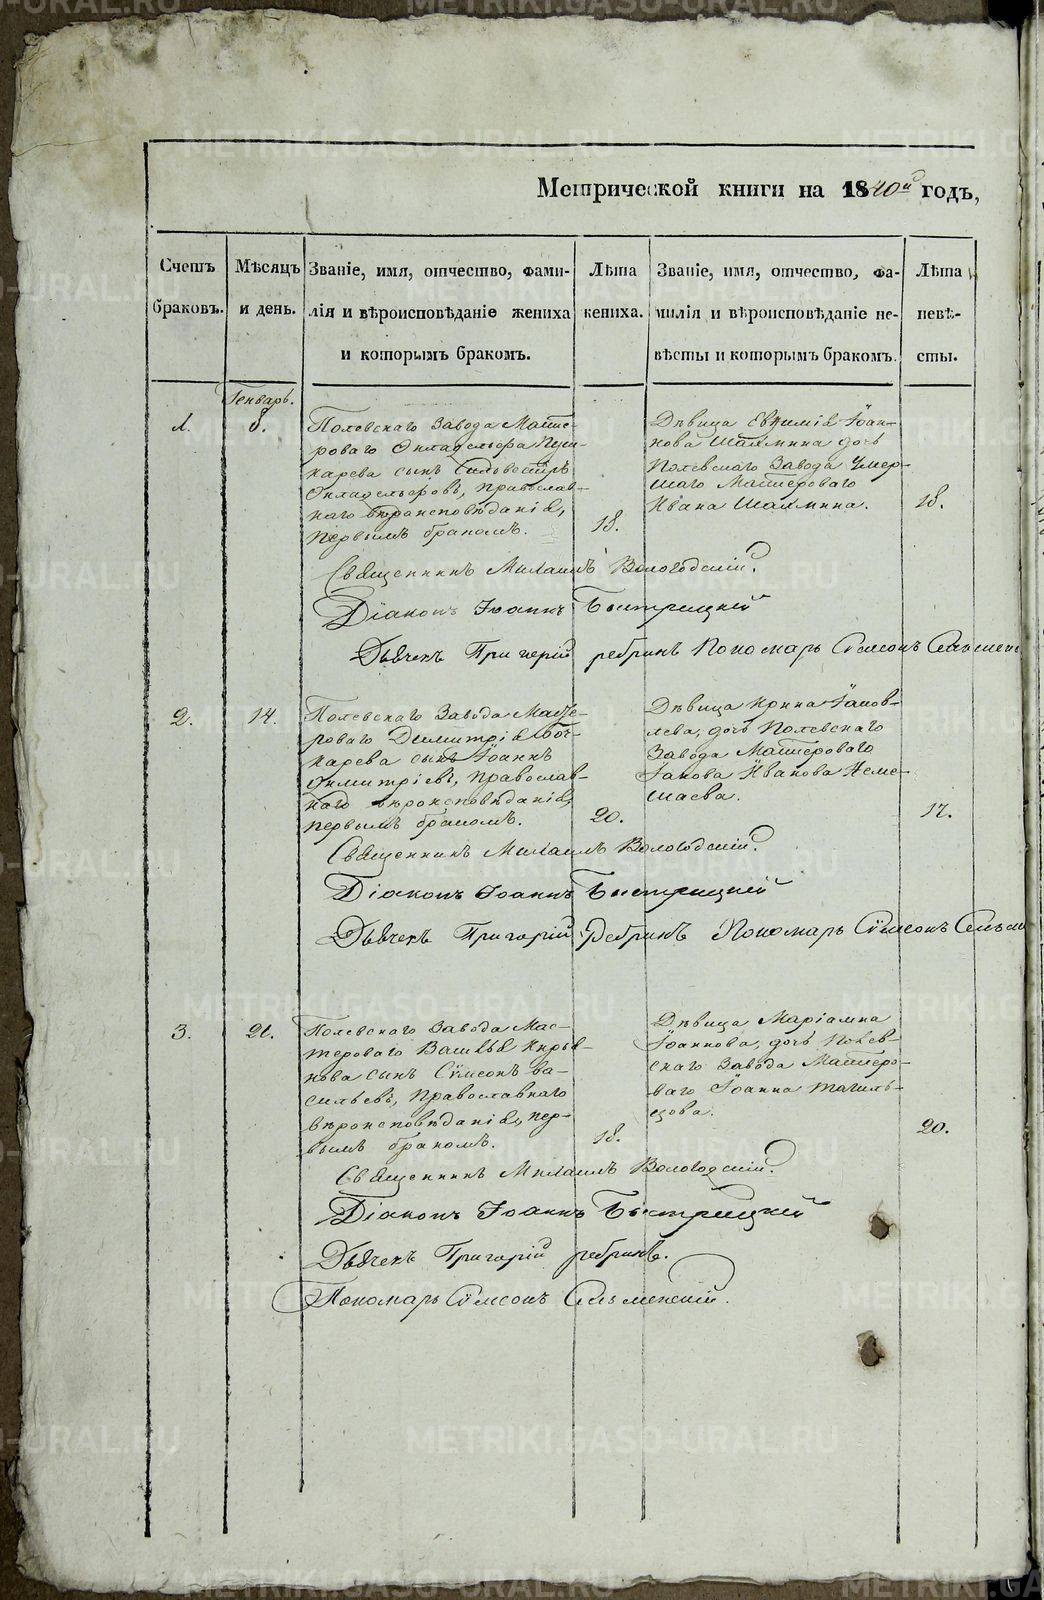 Метрической книги на 1840й годъ,
Счетъ браковъ.
Мѣсяцъ и день.
Званіе, имя, отчество, фами-
лія и вѣроисповѣданіе жениха
и которымъ бракомъ.
Лѣта
жениха.
Званіе, имя, отчество, фа-
милія и вѣроисповѣданіе не-
вѣсты и которымъ бракомъ.
Лѣта
невѣ-
сты.
Генварь.
1.
8.
Полевскаго Завода Масте-
роваго
карева сынъ Сильвестръ
православ-
наго вѣроисповѣданія,
первымъ бракомъ.
18.
Дѣвица Евфимія Іоан-
нова Шаямина дочь
Полевскаго Завода умер-
шаго Мастероваго
Ивана Шаямина.
18.
Священникъ Михаилъ Вологодскій.
Діаконъ Іоаннъ Быстрицкій
Дьячекъ Григорій ребринъ Пономарь Сѵмеонъ
2.
14.
Полевскаго Завода Масте-
роваго Димитрія Боч-
карева сынъ Іоаннъ
Димитріевъ, православ-
наго вѣроисповѣданія,
первымъ бракомъ.
20.
Дѣвица Ирина Іаков-
лева, дочь Полевскаго
Завода Мастероваго
Іакова Иванова Неме-
шаева.
17.
Священникъ Михаилъ Вологодскій.
Діаконъ Іоаннъ Быстрицкій
Дьячекъ Григорій Ребринъ Пономарь Сѵмеонъ
3.
21.
Полевскаго Завода Мас-
тероваго Василья Кирья-
нова сынъ Сѵмеонъ Ва-
сильевъ, православнаго
вѣроисповѣданія, пер-
вымъ бракомъ.
18.
Дѣвица Маріамна
Іоаннова, дочь Полев-
скаго Завода Мастеро-
ваго Іоанна Тагиль-
цова.
20.
Священникъ Михаилъ Вологодскій.
Діаконъ Іоаннъ Быстрицкій
Дьячекъ Григорій ребринъ.
Пономарь Сѵмеонъ Сельменскій.
METRIKI.GASO-URAL.RU